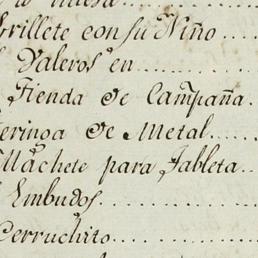 Grillete con su Niño
Valeros en
Tienda de Campaña.
Geringa de Metal
Machete para Tableta
Embudos
Cerruchito